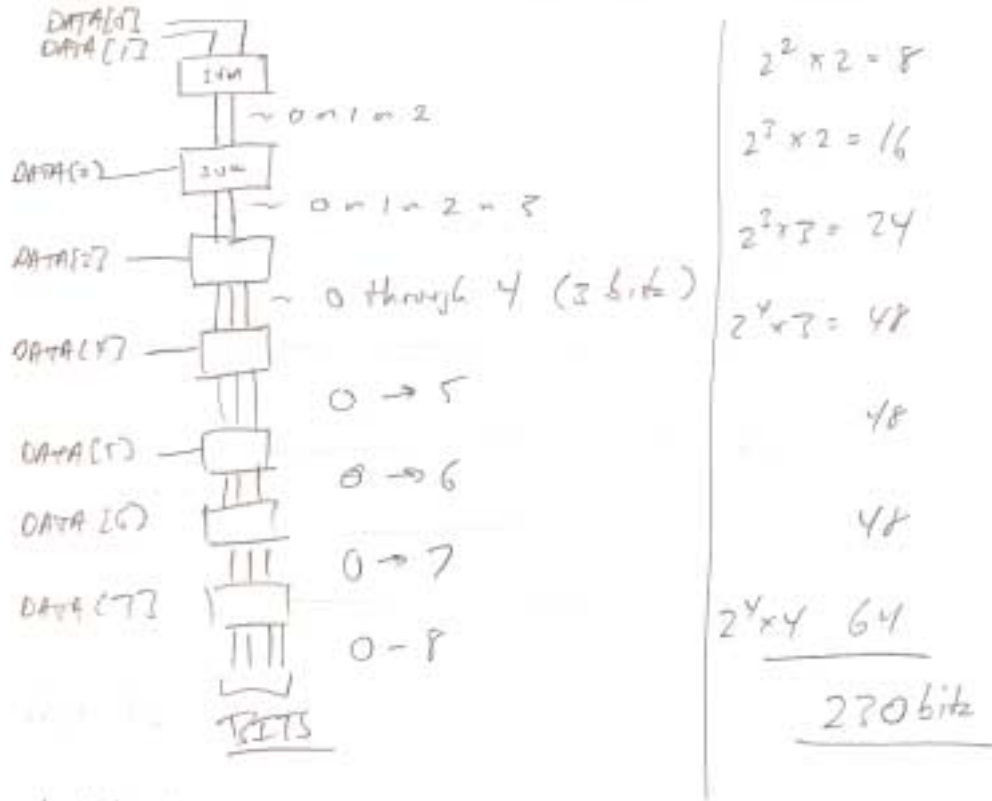 DATA[0]
DATA[1]
SUM
~ 0 or 1 or 2
DATA[2]
SUM
~ 0 or 1 or 2 or 3
DATA[3]
~ 0 through 4 (3 bits)
DATA[4]
0 → 5
DATA[5]
0 → 6
DATA[6]
0 → 7
DATA[7]
0 - 8
BITS
2² × 2 = 8
2³ × 2 = 16
2³ × 3 = 24
2⁴ × 3 = 48
48
48
2⁴ × 4 64
230 bits